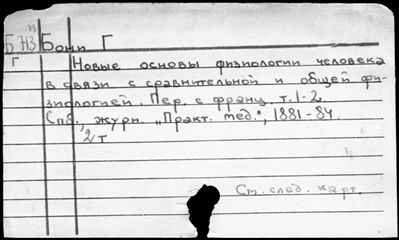 Б 713 Бони Г
Г
Новые основы физиологии человека
в связи с сравнительной и общей фи-
зиологией. Пер. с франц. т. 1-2
Спб., журн. „Практ. мед.", 1881-84.
2 т
См. след. карт.